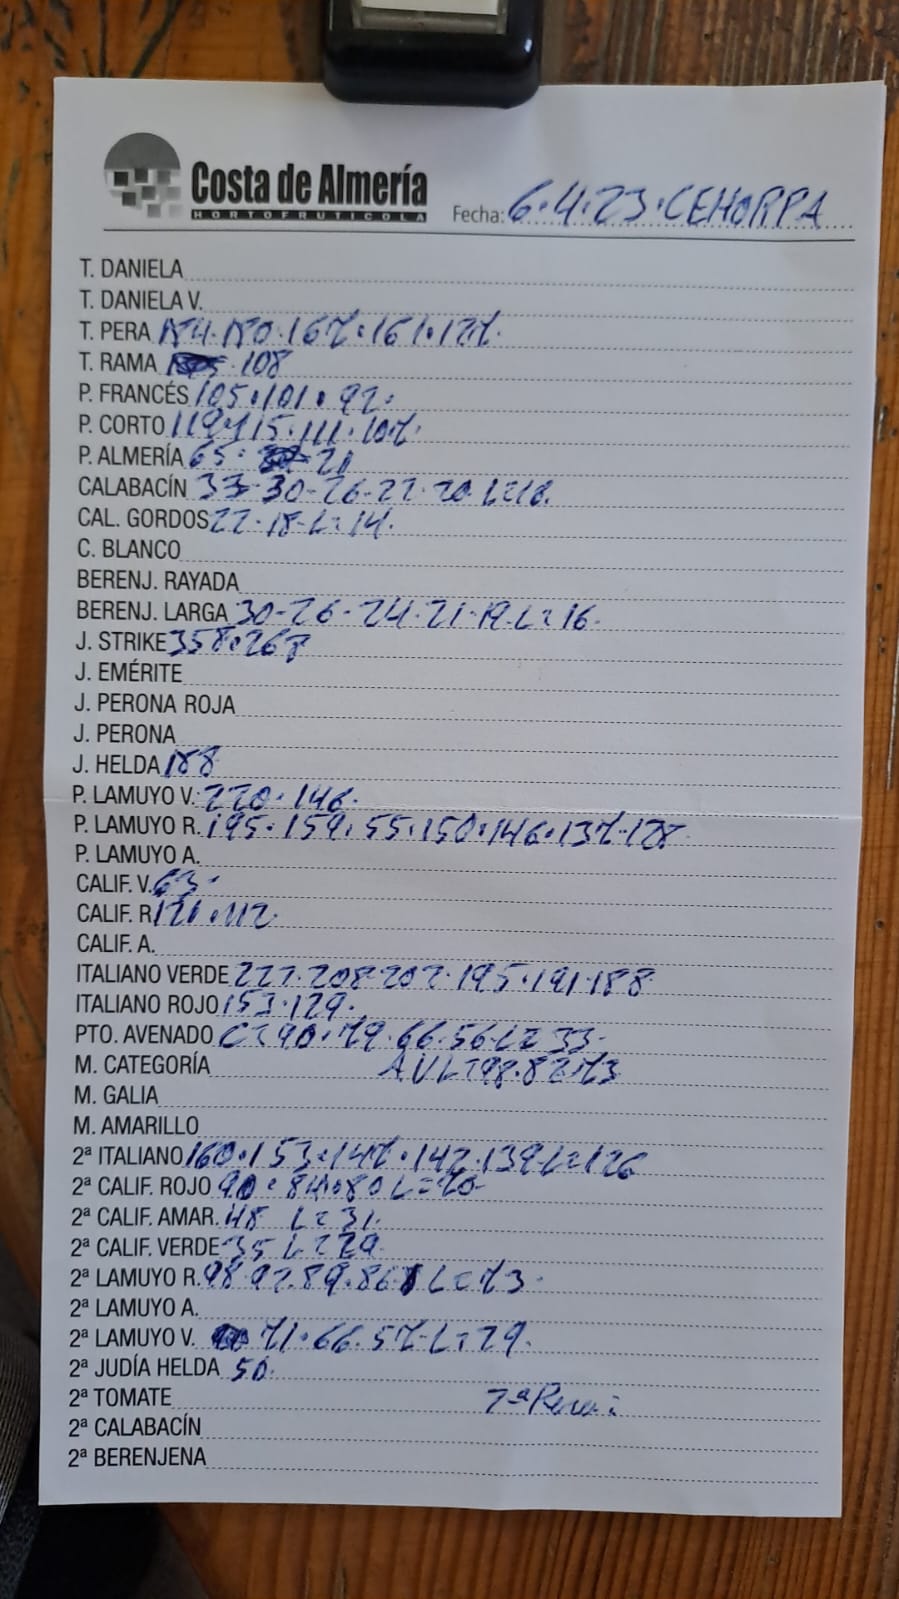 Costa de Almería
HORTOFRUTICOLA
Fecha: 6.4.23.CEHORPA
T. DANIELA
T. DANIELA V.
T. PERA 167.161.127.
T. RAMA 108
P. FRANCÉS 105.101.92.
P. CORTO 119.115.111.107.
P. ALMERÍA 65. 21
CALABACÍN 33-30-26-22-20 L=18.
CAL. GORDOS 22-18-L=14.
C. BLANCO
BERENJ. RAYADA
BERENJ. LARGA 30-26-24-21-19-L=16.
J. STRIKE 358.268
J. EMÉRITE
J. PERONA ROJA
J. PERONA
J. HELDA 188
P. LAMUYO V. 220.146.
P. LAMUYO R. 195.159.55.150.146.137.128
P. LAMUYO A.
CALIF. V. 63.
CALIF. R 121.112
CALIF. A.
ITALIANO VERDE 227.208.202.195.191.188
ITALIANO ROJO 153.129.
PTO. AVENADO C=90.79.66.56.L=33.
M. CATEGORÍA AVL=98.82.73
M. GALIA
M. AMARILLO
2ª ITALIANO 160.153.147.142.139 L=126
2ª CALIF. ROJO 90.84.80 L=70
2ª CALIF. AMAR. 48 L=31.
2ª CALIF. VERDE 35 L=29
2ª LAMUYO R. 98.92.89.86 L=73.
2ª LAMUYO A.
2ª LAMUYO V. 71.66.57-L=29.
2ª JUDÍA HELDA 50.
2ª TOMATE
2ª CALABACÍN
2ª BERENJENA